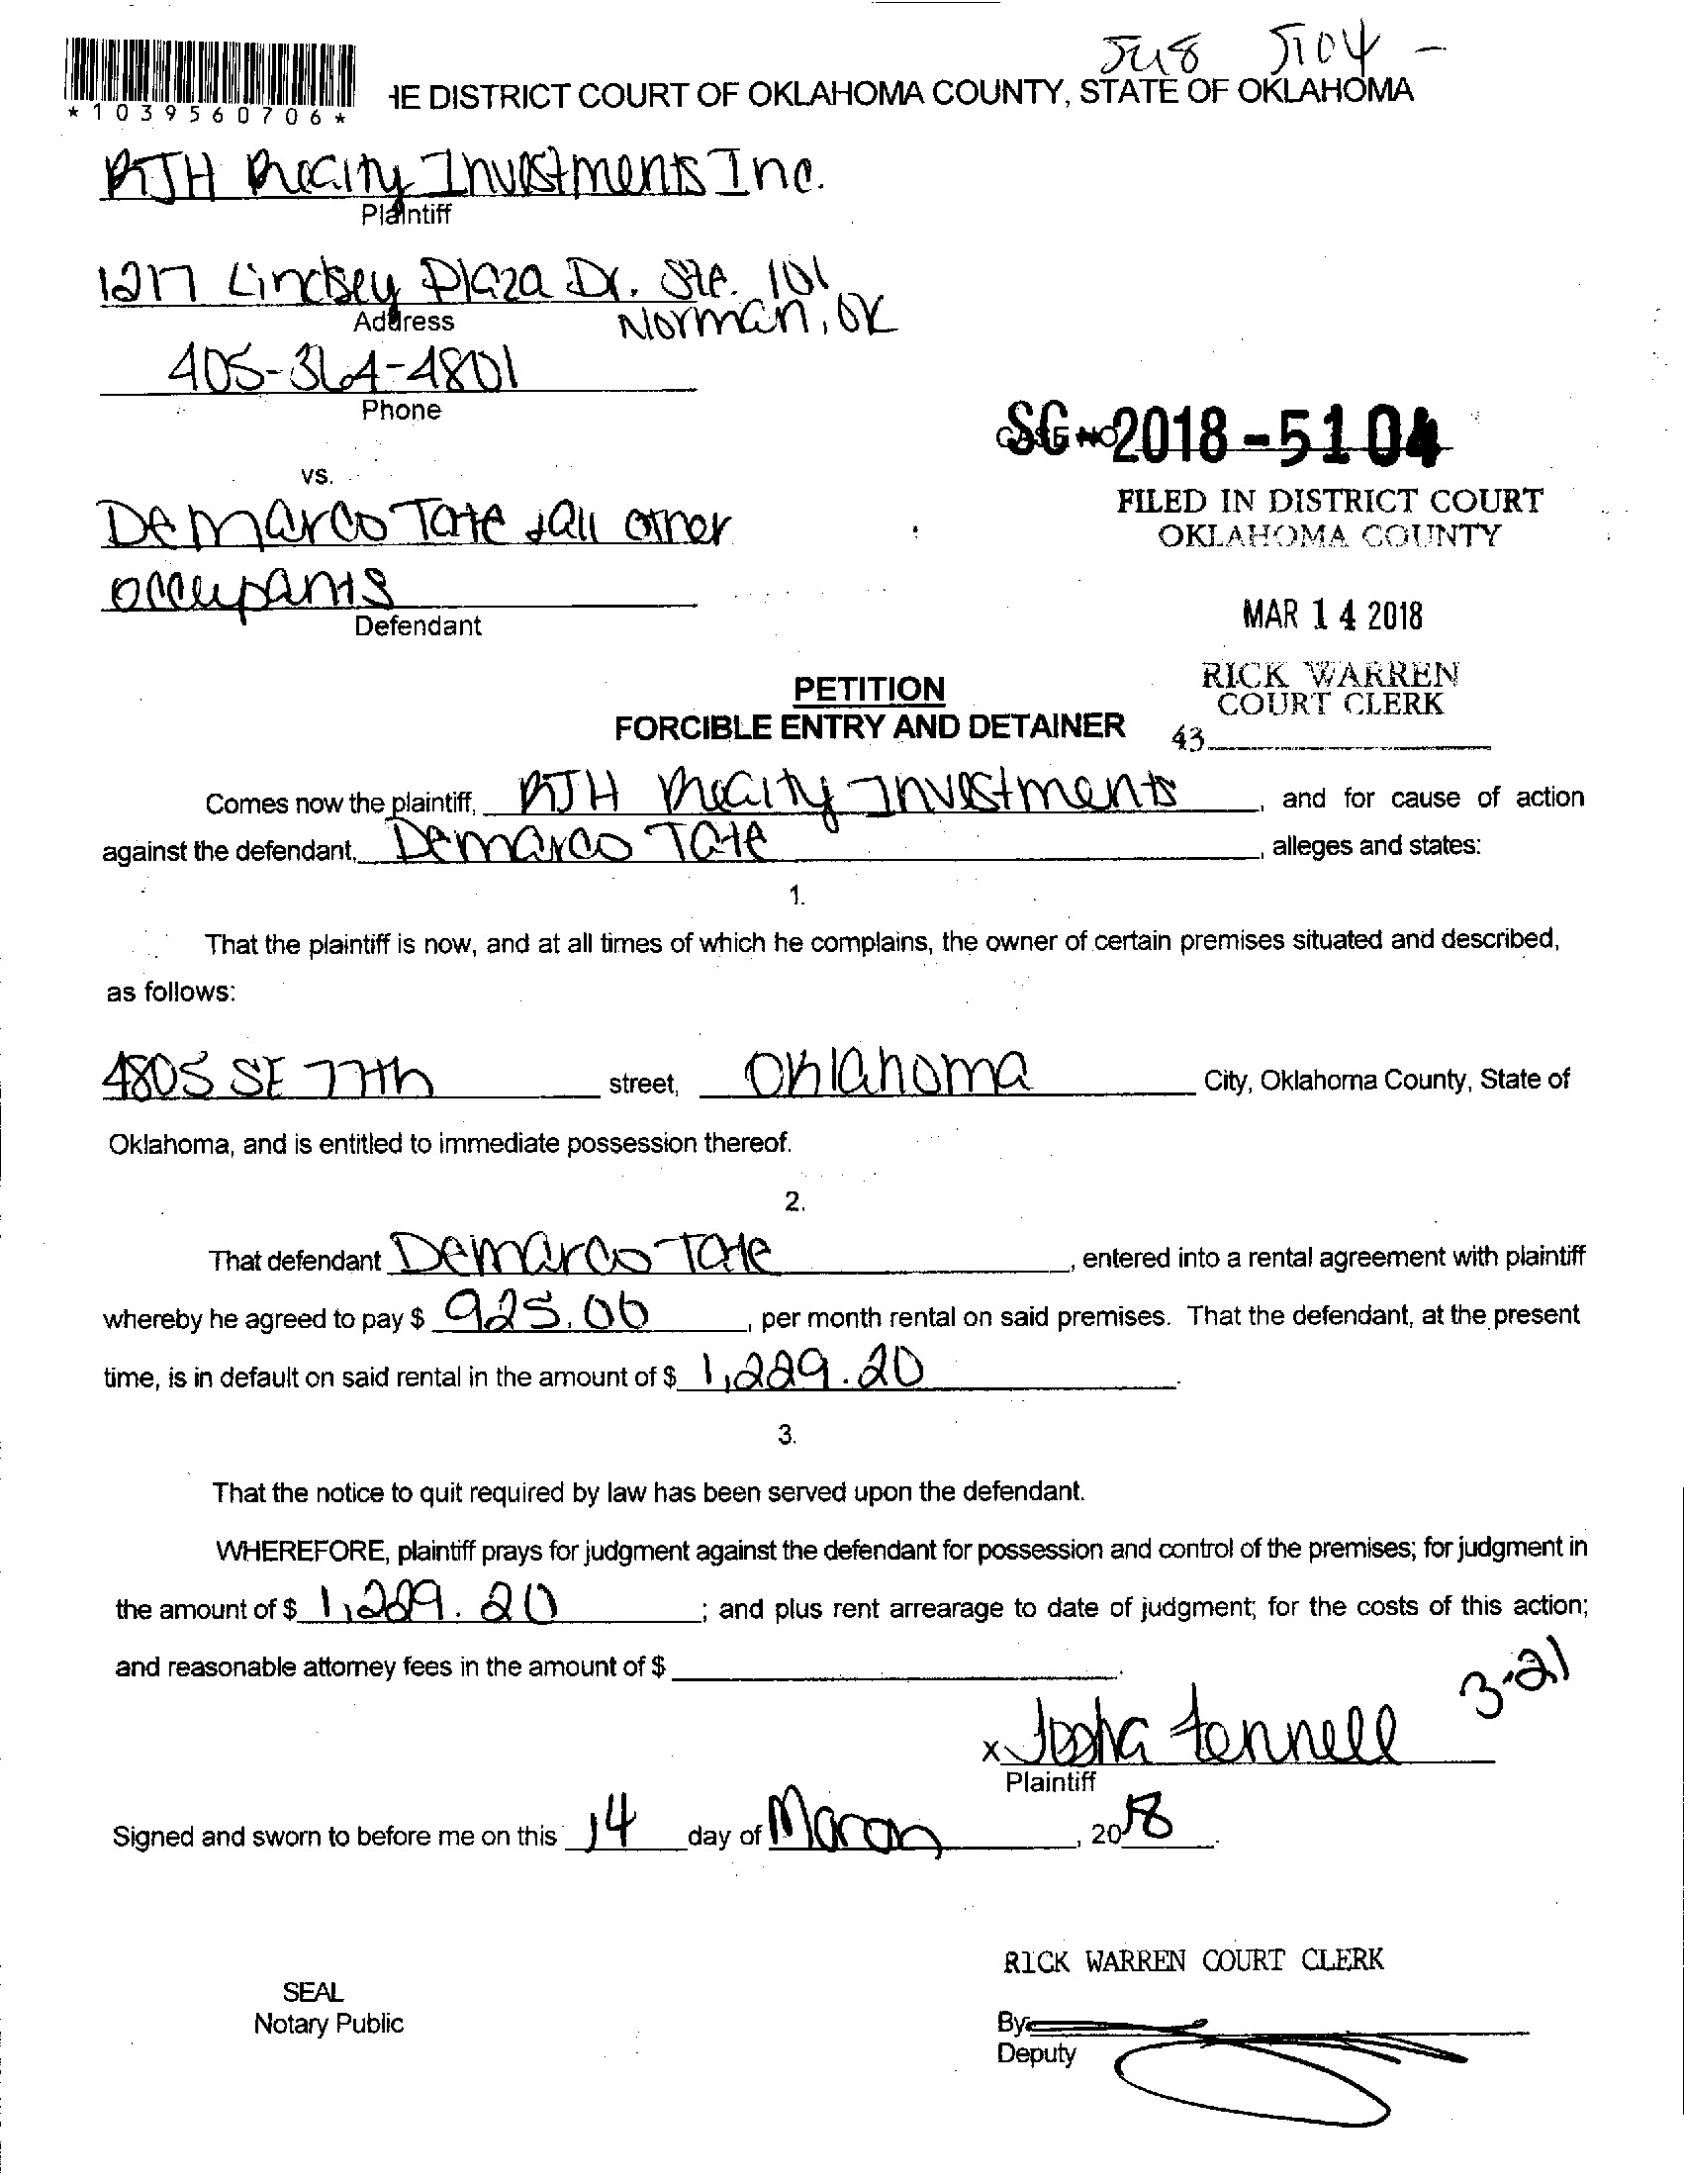 5104 -
HE DISTRICT COURT OF OKLAHOMA COUNTY, STATE OF OKLAHOMA
*1039560706*
RJH Investments Inc.
Plaintiff
1217 Lindsey Plaza Dr. Ste. 101
Address
Norman, OK
405-364-4801
Phone
SC 2018-5104
CASE NO
vs.
FILED IN DISTRICT COURT
Demarco Tate & all other
OKLAHOMA COUNTY
occupants
Defendant
MAR 14 2018
RICK WARREN
PETITION
COURT CLERK
FORCIBLE ENTRY AND DETAINER
43
Comes now the plaintiff, RJH Investments, and for cause of action
against the defendant, Demarco Tate, alleges and states:
1.
That the plaintiff is now, and at all times of which he complains, the owner of certain premises situated and described,
as follows:
4805 SE 77th street, Oklahoma City, Oklahoma County, State of
Oklahoma, and is entitled to immediate possession thereof.
2.
That defendant Demarco Tate, entered into a rental agreement with plaintiff
whereby he agreed to pay $ 925.00, per month rental on said premises. That the defendant, at the present
time, is in default on said rental in the amount of $ 1,229.20.
3.
That the notice to quit required by law has been served upon the defendant.
WHEREFORE, plaintiff prays for judgment against the defendant for possession and control of the premises; for judgment in
the amount of $ 1,229.20; and plus rent arrearage to date of judgment; for the costs of this action;
and reasonable attorney fees in the amount of $
3-21
x Fennell
Plaintiff
Signed and sworn to before me on this 14 day of March, 2018.
RICK WARREN COURT CLERK
SEAL
Notary Public
By
Deputy